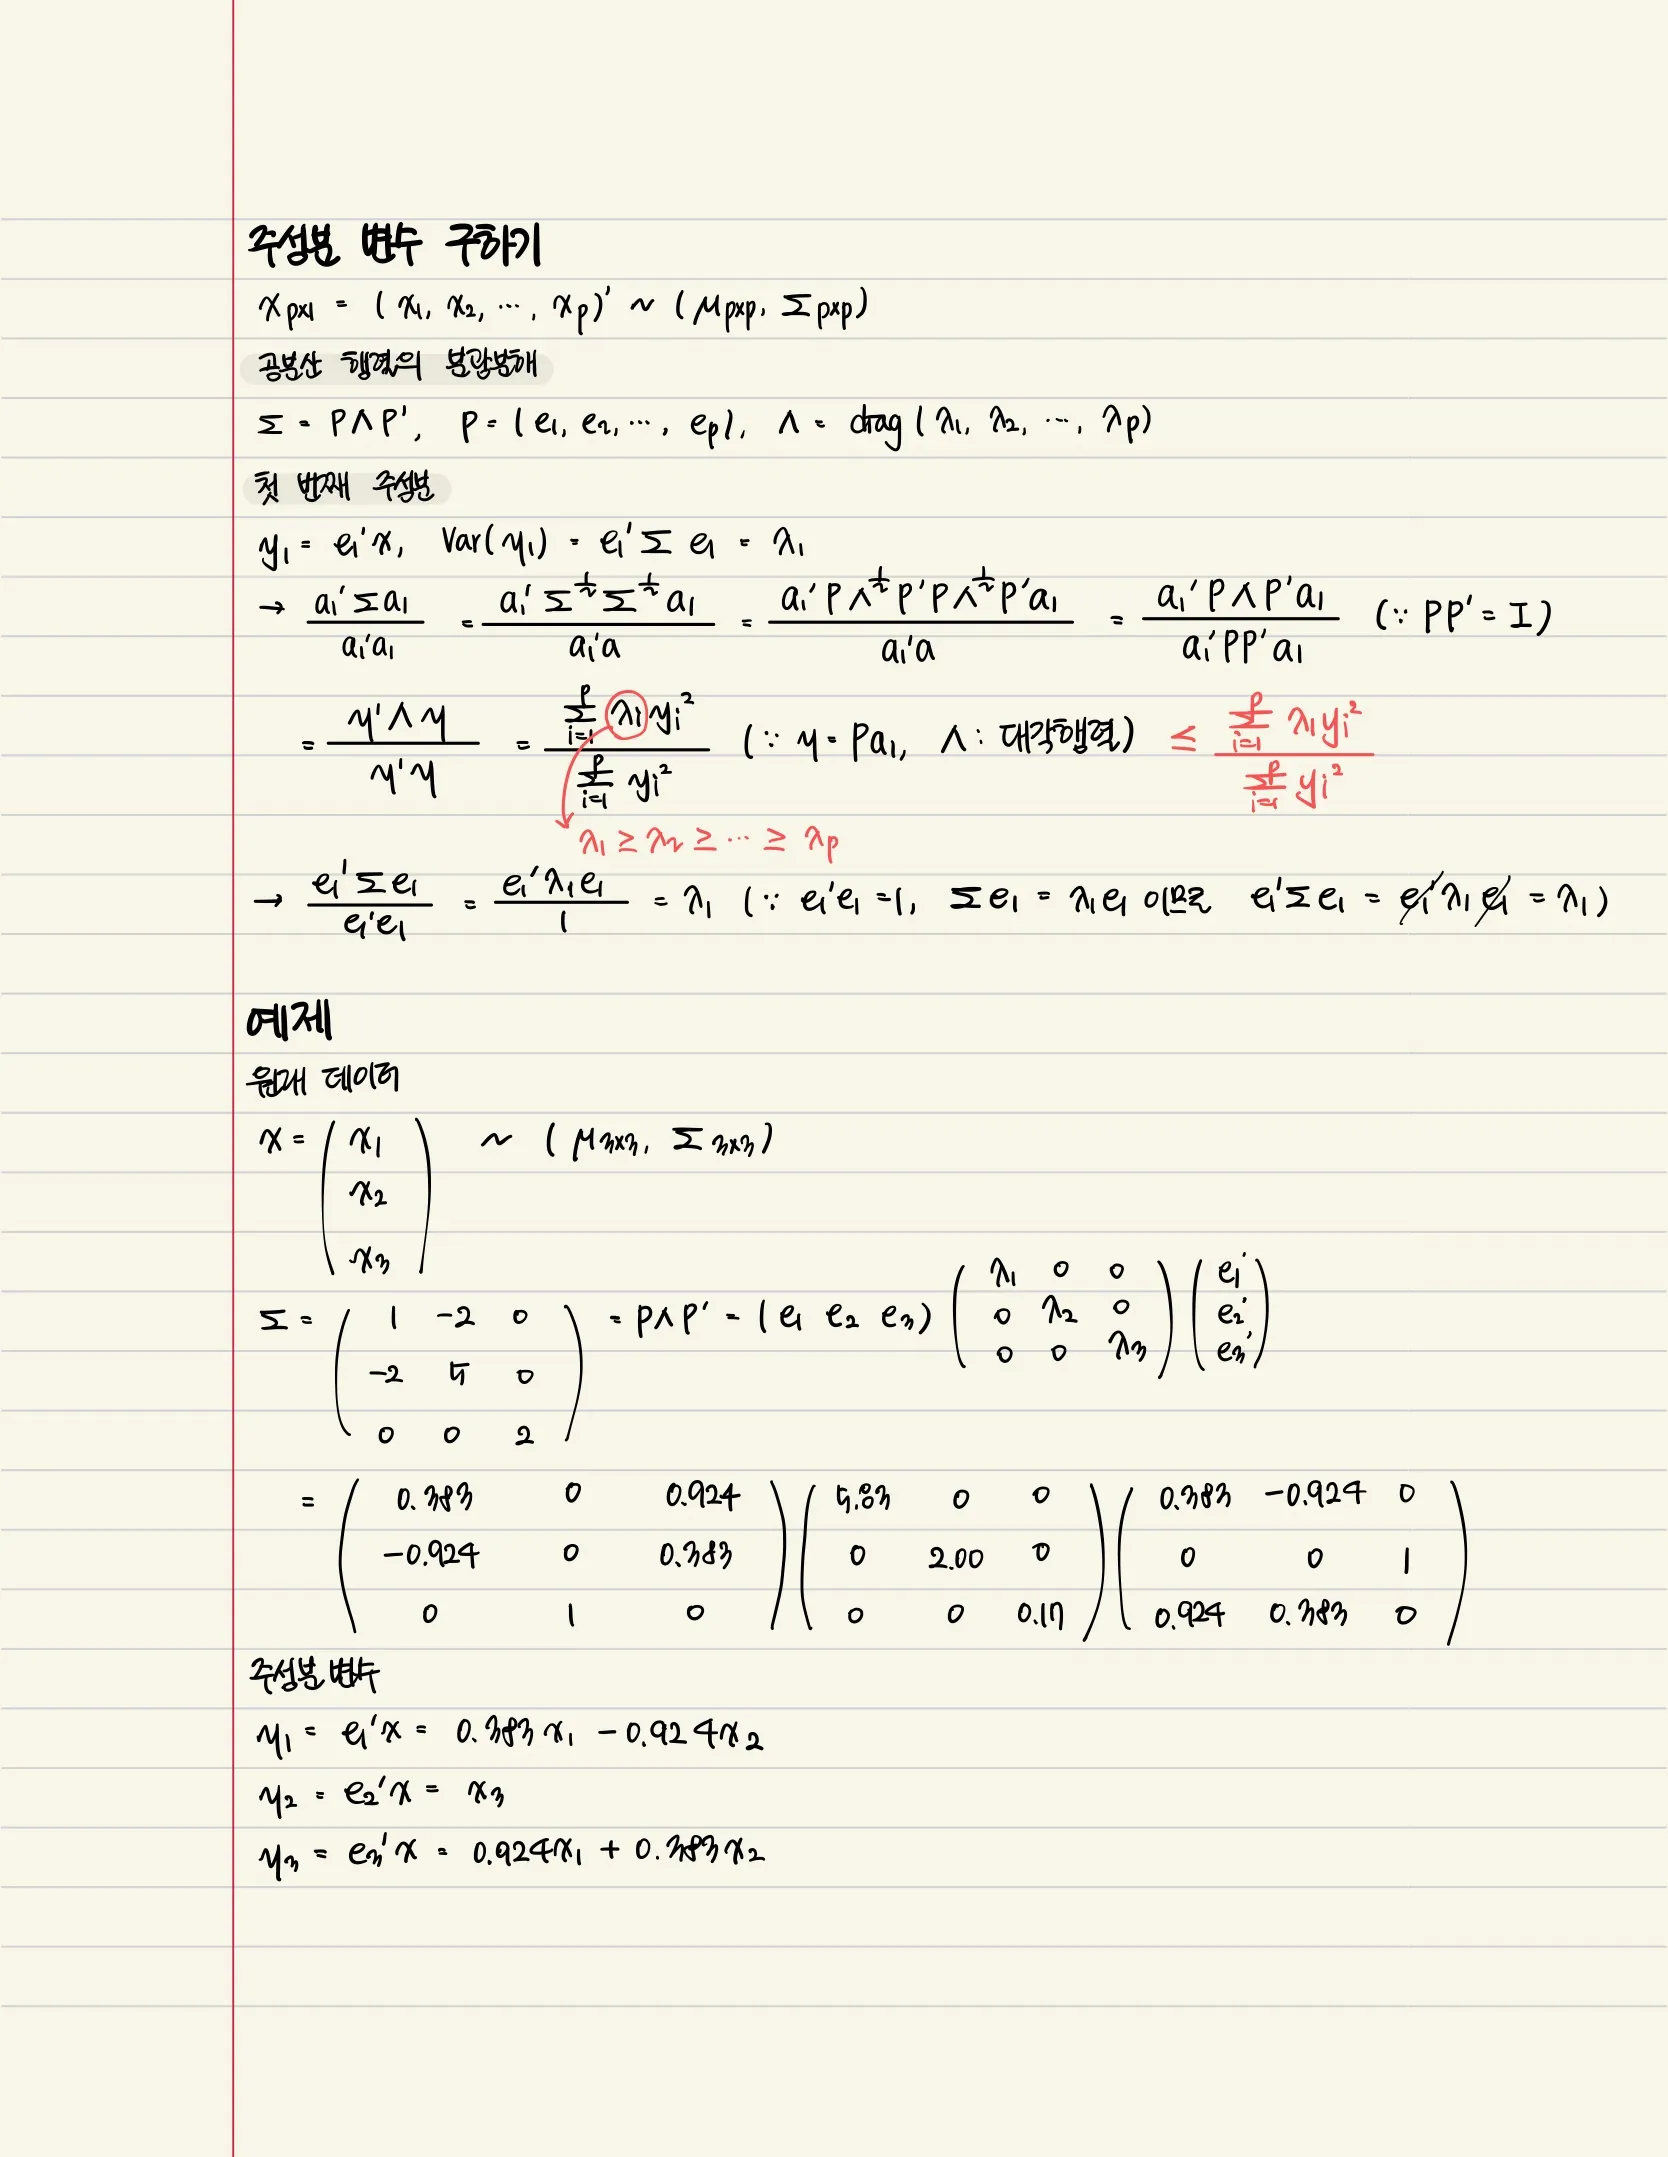 주성분 변수 구하기
x_{p×1} = (x_1, x_2, ⋯, x_p)' ~ (μ_{p×p}, Σ_{p×p})
공분산 행렬의 분광분해
Σ = PΛP', P = (e_1, e_2, ⋯, e_p), Λ = diag(λ_1, λ_2, ⋯, λ_p)
첫 번째 주성분
y_1 = e_1'x, Var(y_1) = e_1'Σe_1 = λ_1
→ (a_1'Σa_1)/(a_1'a_1) = (a_1'Σ^{1/2}Σ^{1/2}a_1)/(a_1'a) = (a_1'PΛ^{1/2}P'PΛ^{1/2}P'a_1)/(a_1'a) = (a_1'PΛP'a_1)/(a_1'PP'a_1) (∵ PP' = I)
= (y'Λy)/(y'y) = (Σ_{i=1}^{p} λ_i y_i²)/(Σ_{i=1}^{p} y_i²) (∵ y = Pa_1, Λ : 대각행렬) ≤ (Σ_{i=1}^{p} λ_1 y_i²)/(Σ_{i=1}^{p} y_i²)
λ_1 ≥ λ_2 ≥ ⋯ ≥ λ_p
→ (e_1'Σe_1)/(e_1'e_1) = (e_1'λ_1e_1)/1 = λ_1 (∵ e_1'e_1 = 1, Σe_1 = λ_1e_1 이므로 e_1'Σe_1 = e_1'λ_1e_1 = λ_1)
예제
원래 데이터
x = (x_1 ~ (μ_{3×3}, Σ_{3×3})
x_2
x_3)
Σ = (1 -2 0 = PΛP' = (e_1 e_2 e_3) (λ_1 0 0 (e_1'
-2 5 0 0 λ_2 0 e_2'
0 0 2) 0 0 λ_3) e_3')
= (0.383 0 0.924 (5.83 0 0 (0.383 -0.924 0
-0.924 0 0.383 0 2.00 0 0 0 1
0 1 0) 0 0 0.17) 0.924 0.383 0)
주성분변수
y_1 = e_1'x = 0.383x_1 - 0.924x_2
y_2 = e_2'x = x_3
y_3 = e_3'x = 0.924x_1 + 0.383x_2